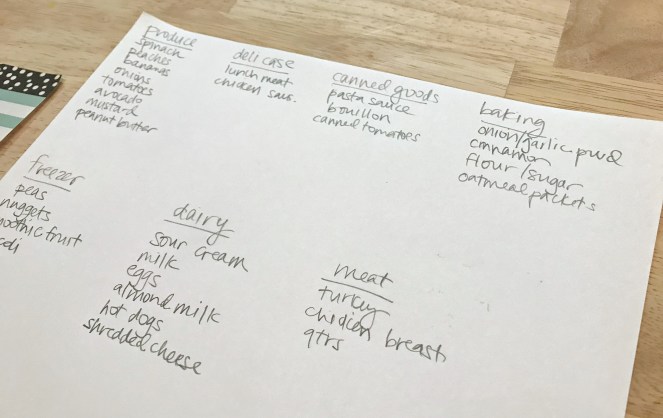 produce
spinach
peaches
bananas
onions
tomatoes
avocado
mustard
peanut butter
deli case
lunch meat
chicken saus.
canned goods
pasta sauce
bouillon
canned tomatoes
baking
onion/garlic pwd
cinnamon
flour/sugar
oatmeal packets
freezer
peas
nuggets
fruit
dairy
sour cream
milk
eggs
almond milk
hot dogs
shredded cheese
meat
turkey
chicken breast
qtrs